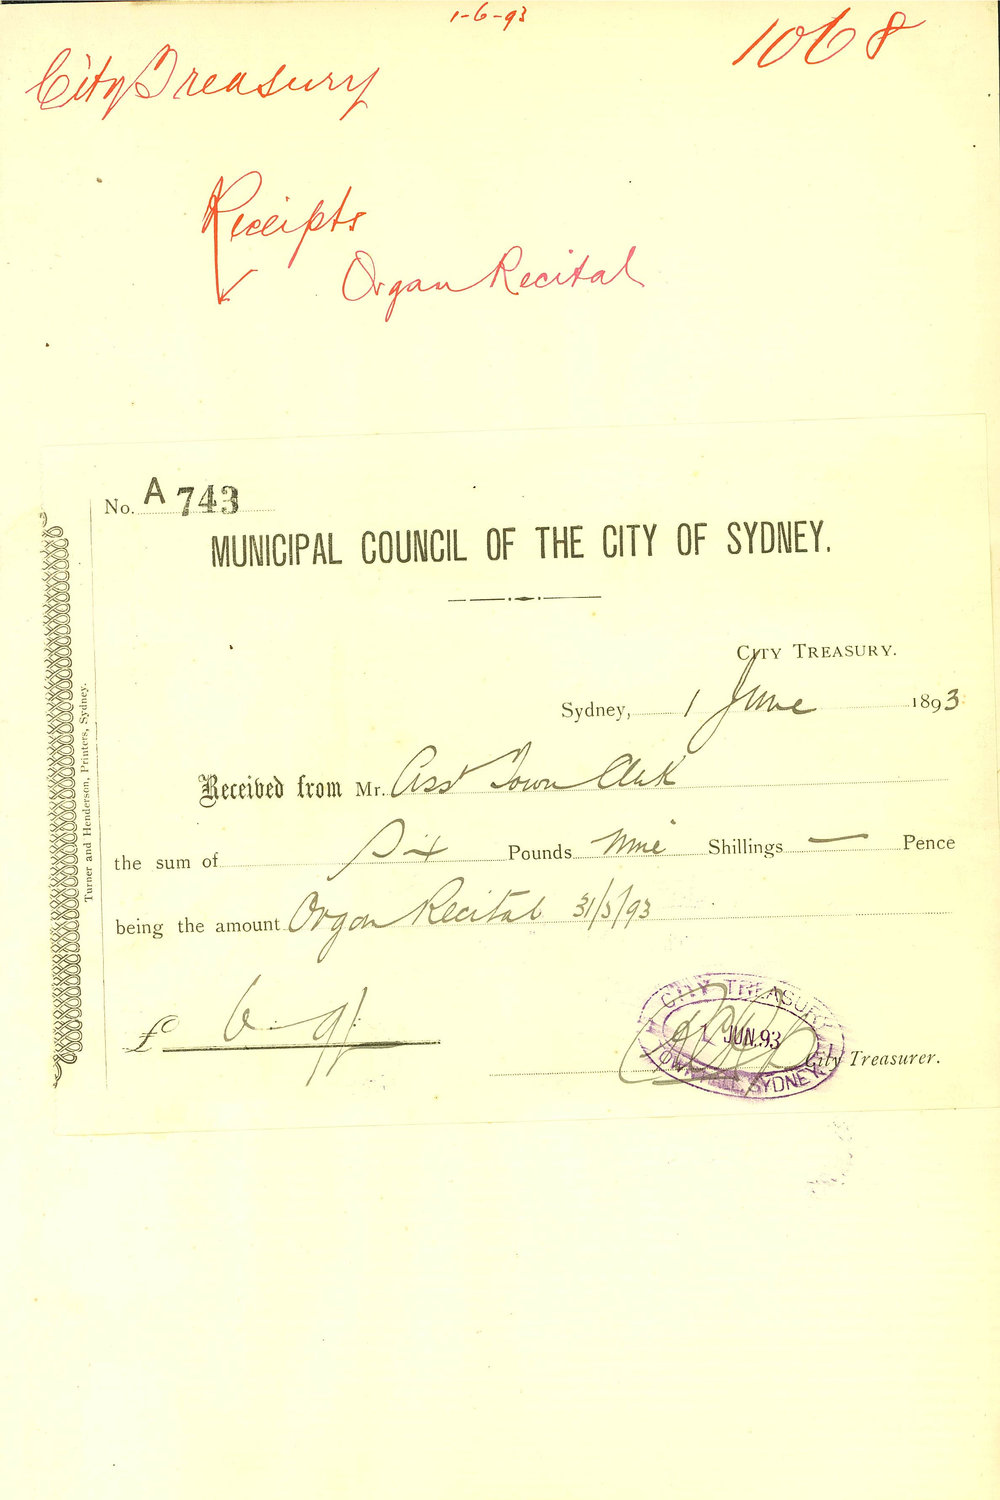 1-6-93
1068
City Treasury
Receipts
Organ Recital
No. A 743
MUNICIPAL COUNCIL OF THE CITY OF SYDNEY.
CITY TREASURY.
Sydney, 1 June 1893
Received from Mr. Asst Town Clerk
the sum of Six Pounds Nine Shillings — Pence
being the amount Organ Recital 31/5/93
£ 6 - 9/-
CITY TREASURY
1 JUN.93
TOWN HALL SYDNEY.
City Treasurer.
Turner and Henderson, Printers, Sydney.